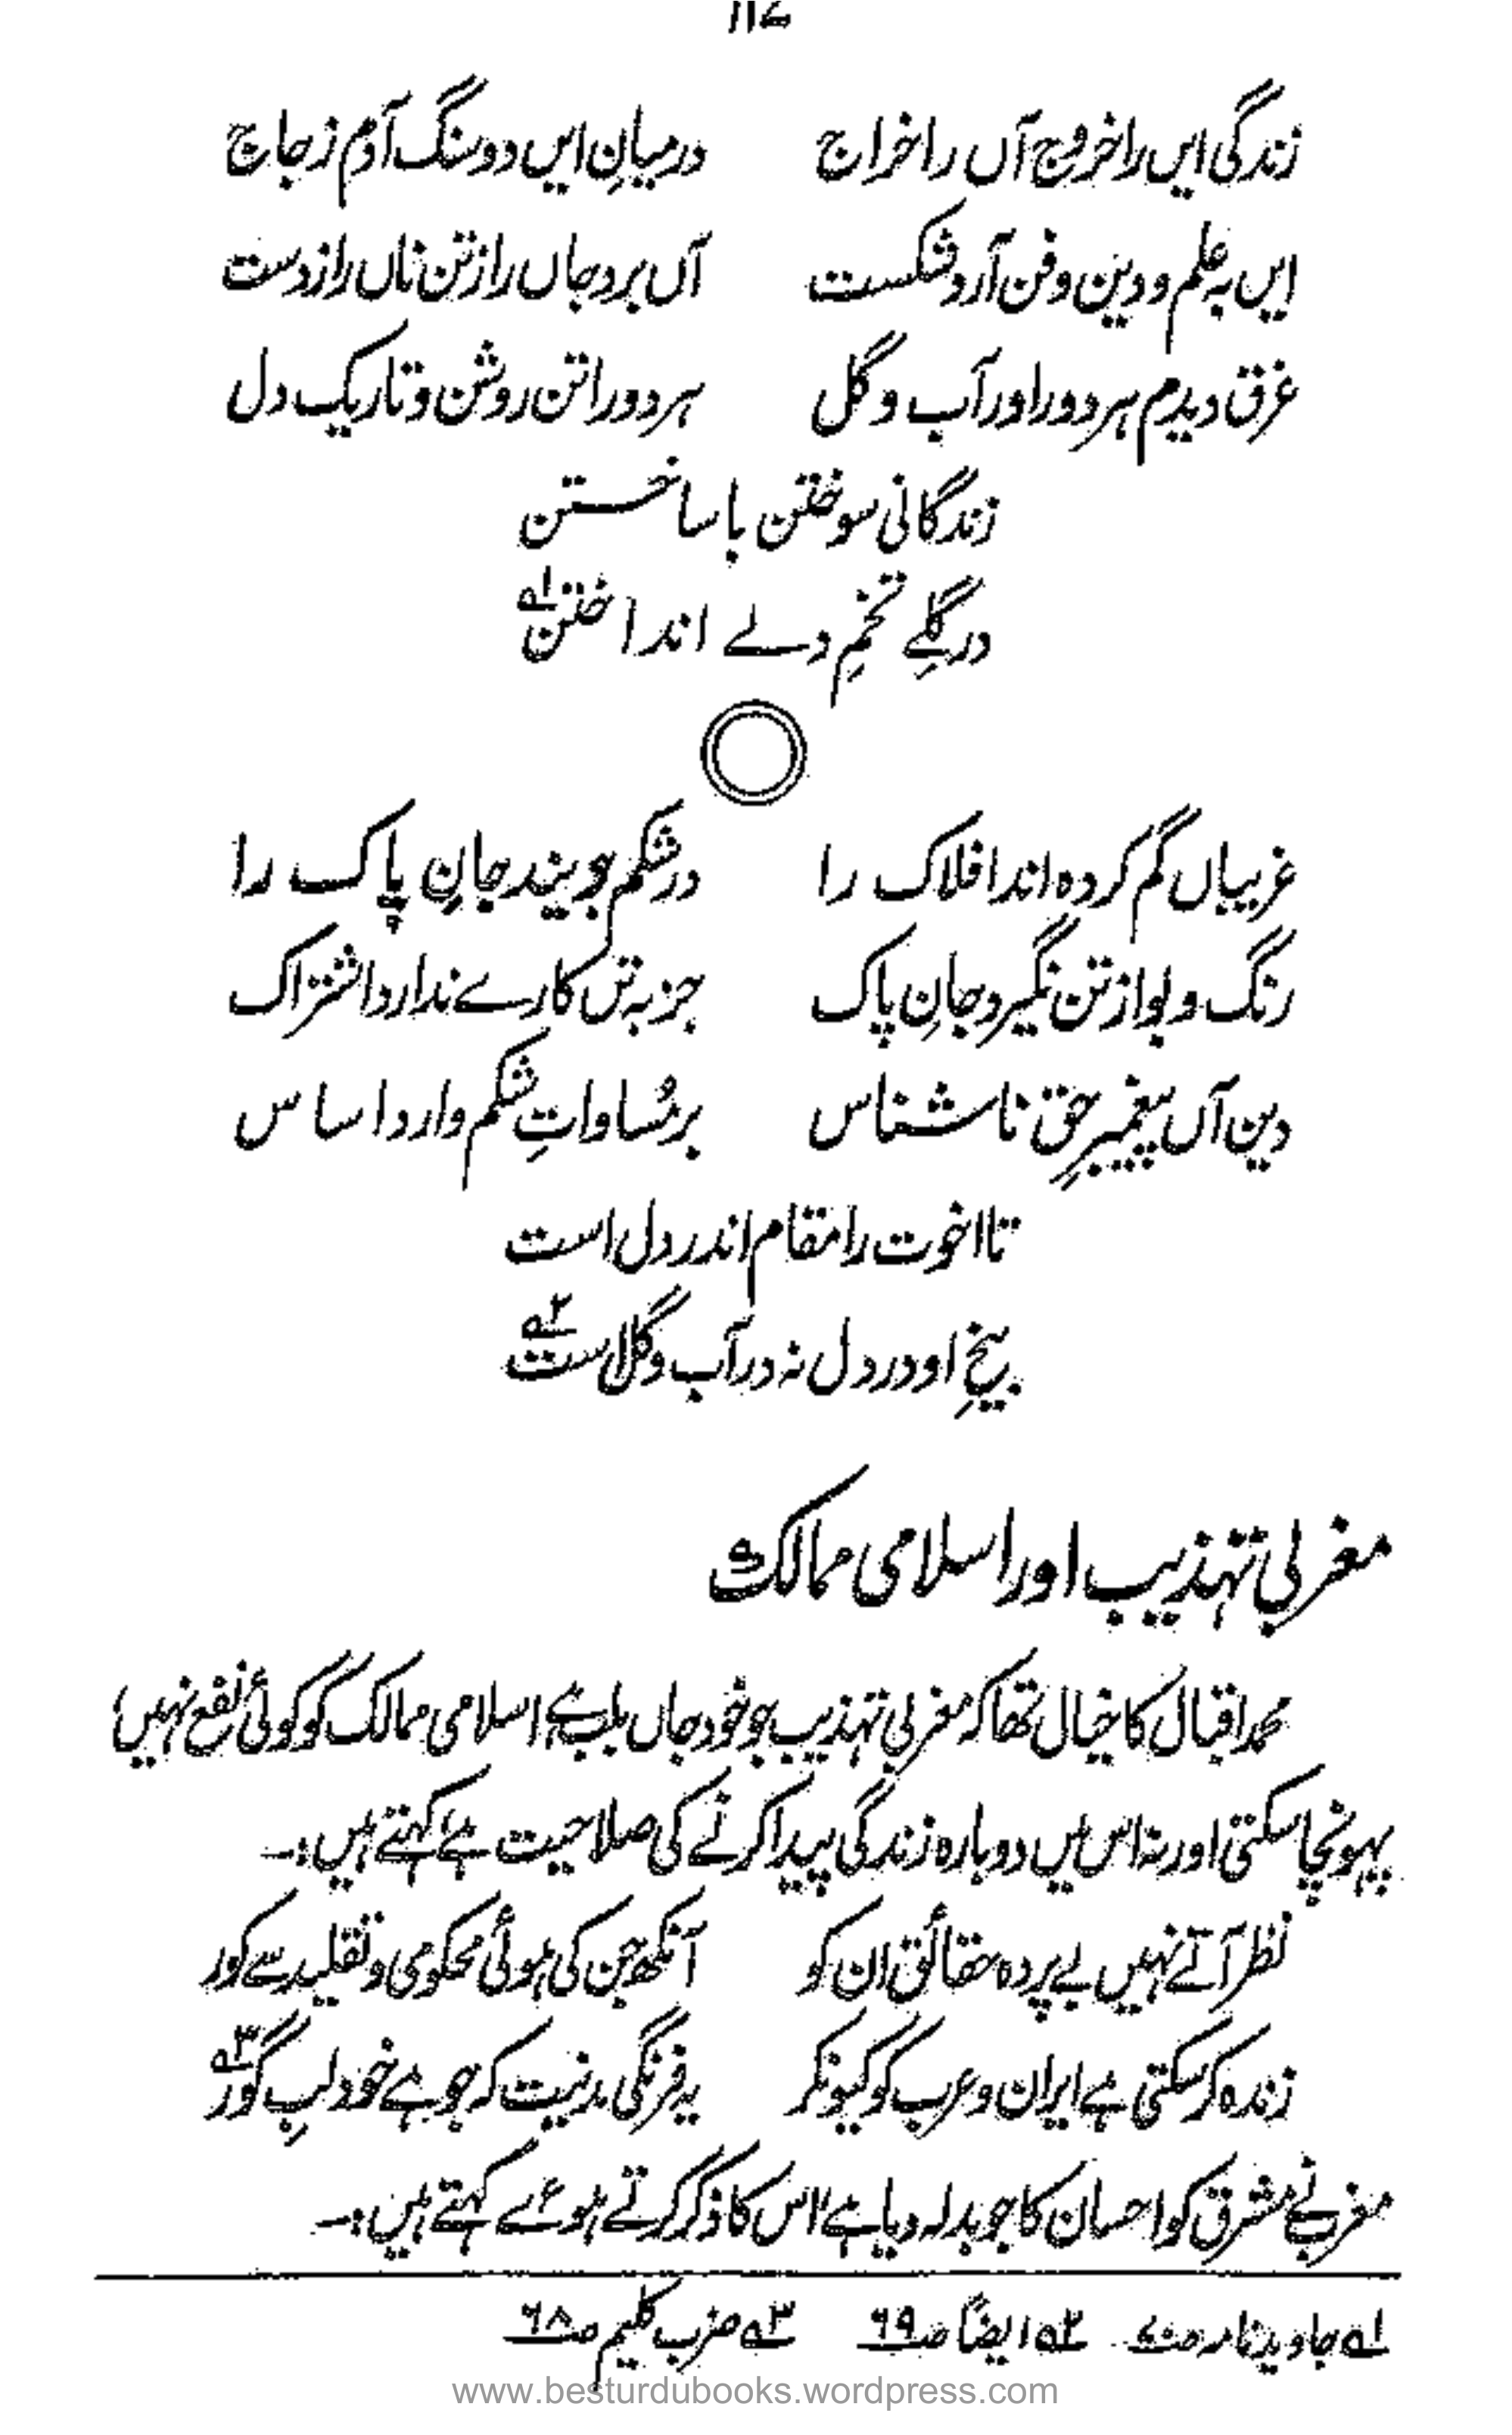 ۱۱۷
زندگی ایں را خروج آں را خراج درمیانِ ایں دو سنگ آدم زجاج
ایں بہ علم و دین و فن آرد شکست آں برد جاں را ز تن ناں را ز دست
غرق دیدم ہر دو را در آب و گل ہر دو را تن روشن و تاریک دل
زندگانی سوختن با ساختن
در گِلے تخمِ دلے انداختن ۱؎
غربیاں گم کردہ اند افلاک را در شکم جویند جانِ پاک را
رنگ و بو از تن نگیرد جانِ پاک جز بہ تن کارے ندارد اشتراک
دین آں پیغمبرِ حق ناشناس بر مُساواتِ شکم دارد اساس
تا اخوت را مقام اندر دل است
بیخِ او در دل نہ در آب و گل است ۲؎
مغربی تہذیب اور اسلامی ممالک
محمد اقبال کا خیال تھا کہ مغربی تہذیب جو خود جاں بلب ہے، اسلامی ممالک کو کوئی نفع نہیں،
پہونچا سکتی اور نہ اس میں دوبارہ زندگی پیدا کرنے کی صلاحیت ہے کہتے ہیں :۔
نظر آتے نہیں بے پردہ حقائق ان کو آنکھ جن کی ہوئی محکومی و تقلید سے کور
زندہ کر سکتی ہے ایران و عرب کو کیونکر یہ فرنگی مدنیت کہ جو ہے خود لبِ گور ۳؎
مغرب نے مشرق کو احسان کا جو بدلہ دیا ہے اس کا ذکر کرتے ہوئے کہتے ہیں :۔
۱؎ جاوید نامہ ص۷۰ ۲؎ ایضاً ص۶۹ ۳؎ ضرب کلیم ص۶۸
www.besturdubooks.wordpress.com